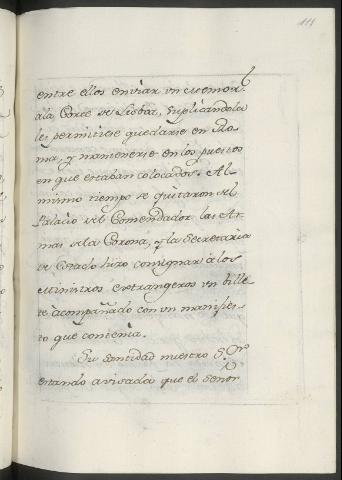 111
entre ellos enviar un memor.l
a la Corte de Lisboa, suplicandola
les permitiese quedarse en Ro-
ma, y mantenerse en los puestos
en que estaban colocados. Al
mismo tiempo se quitaron del
Palacio del Comendador las Ar-
mas de la Corona, y la Secretaria
de Estado hizo consignar à los
Ministros extrangeros un bille-
te acompañado con un manifies-
to que contenia.
Su santidad nuestro S.or
estando avisada que el Señor